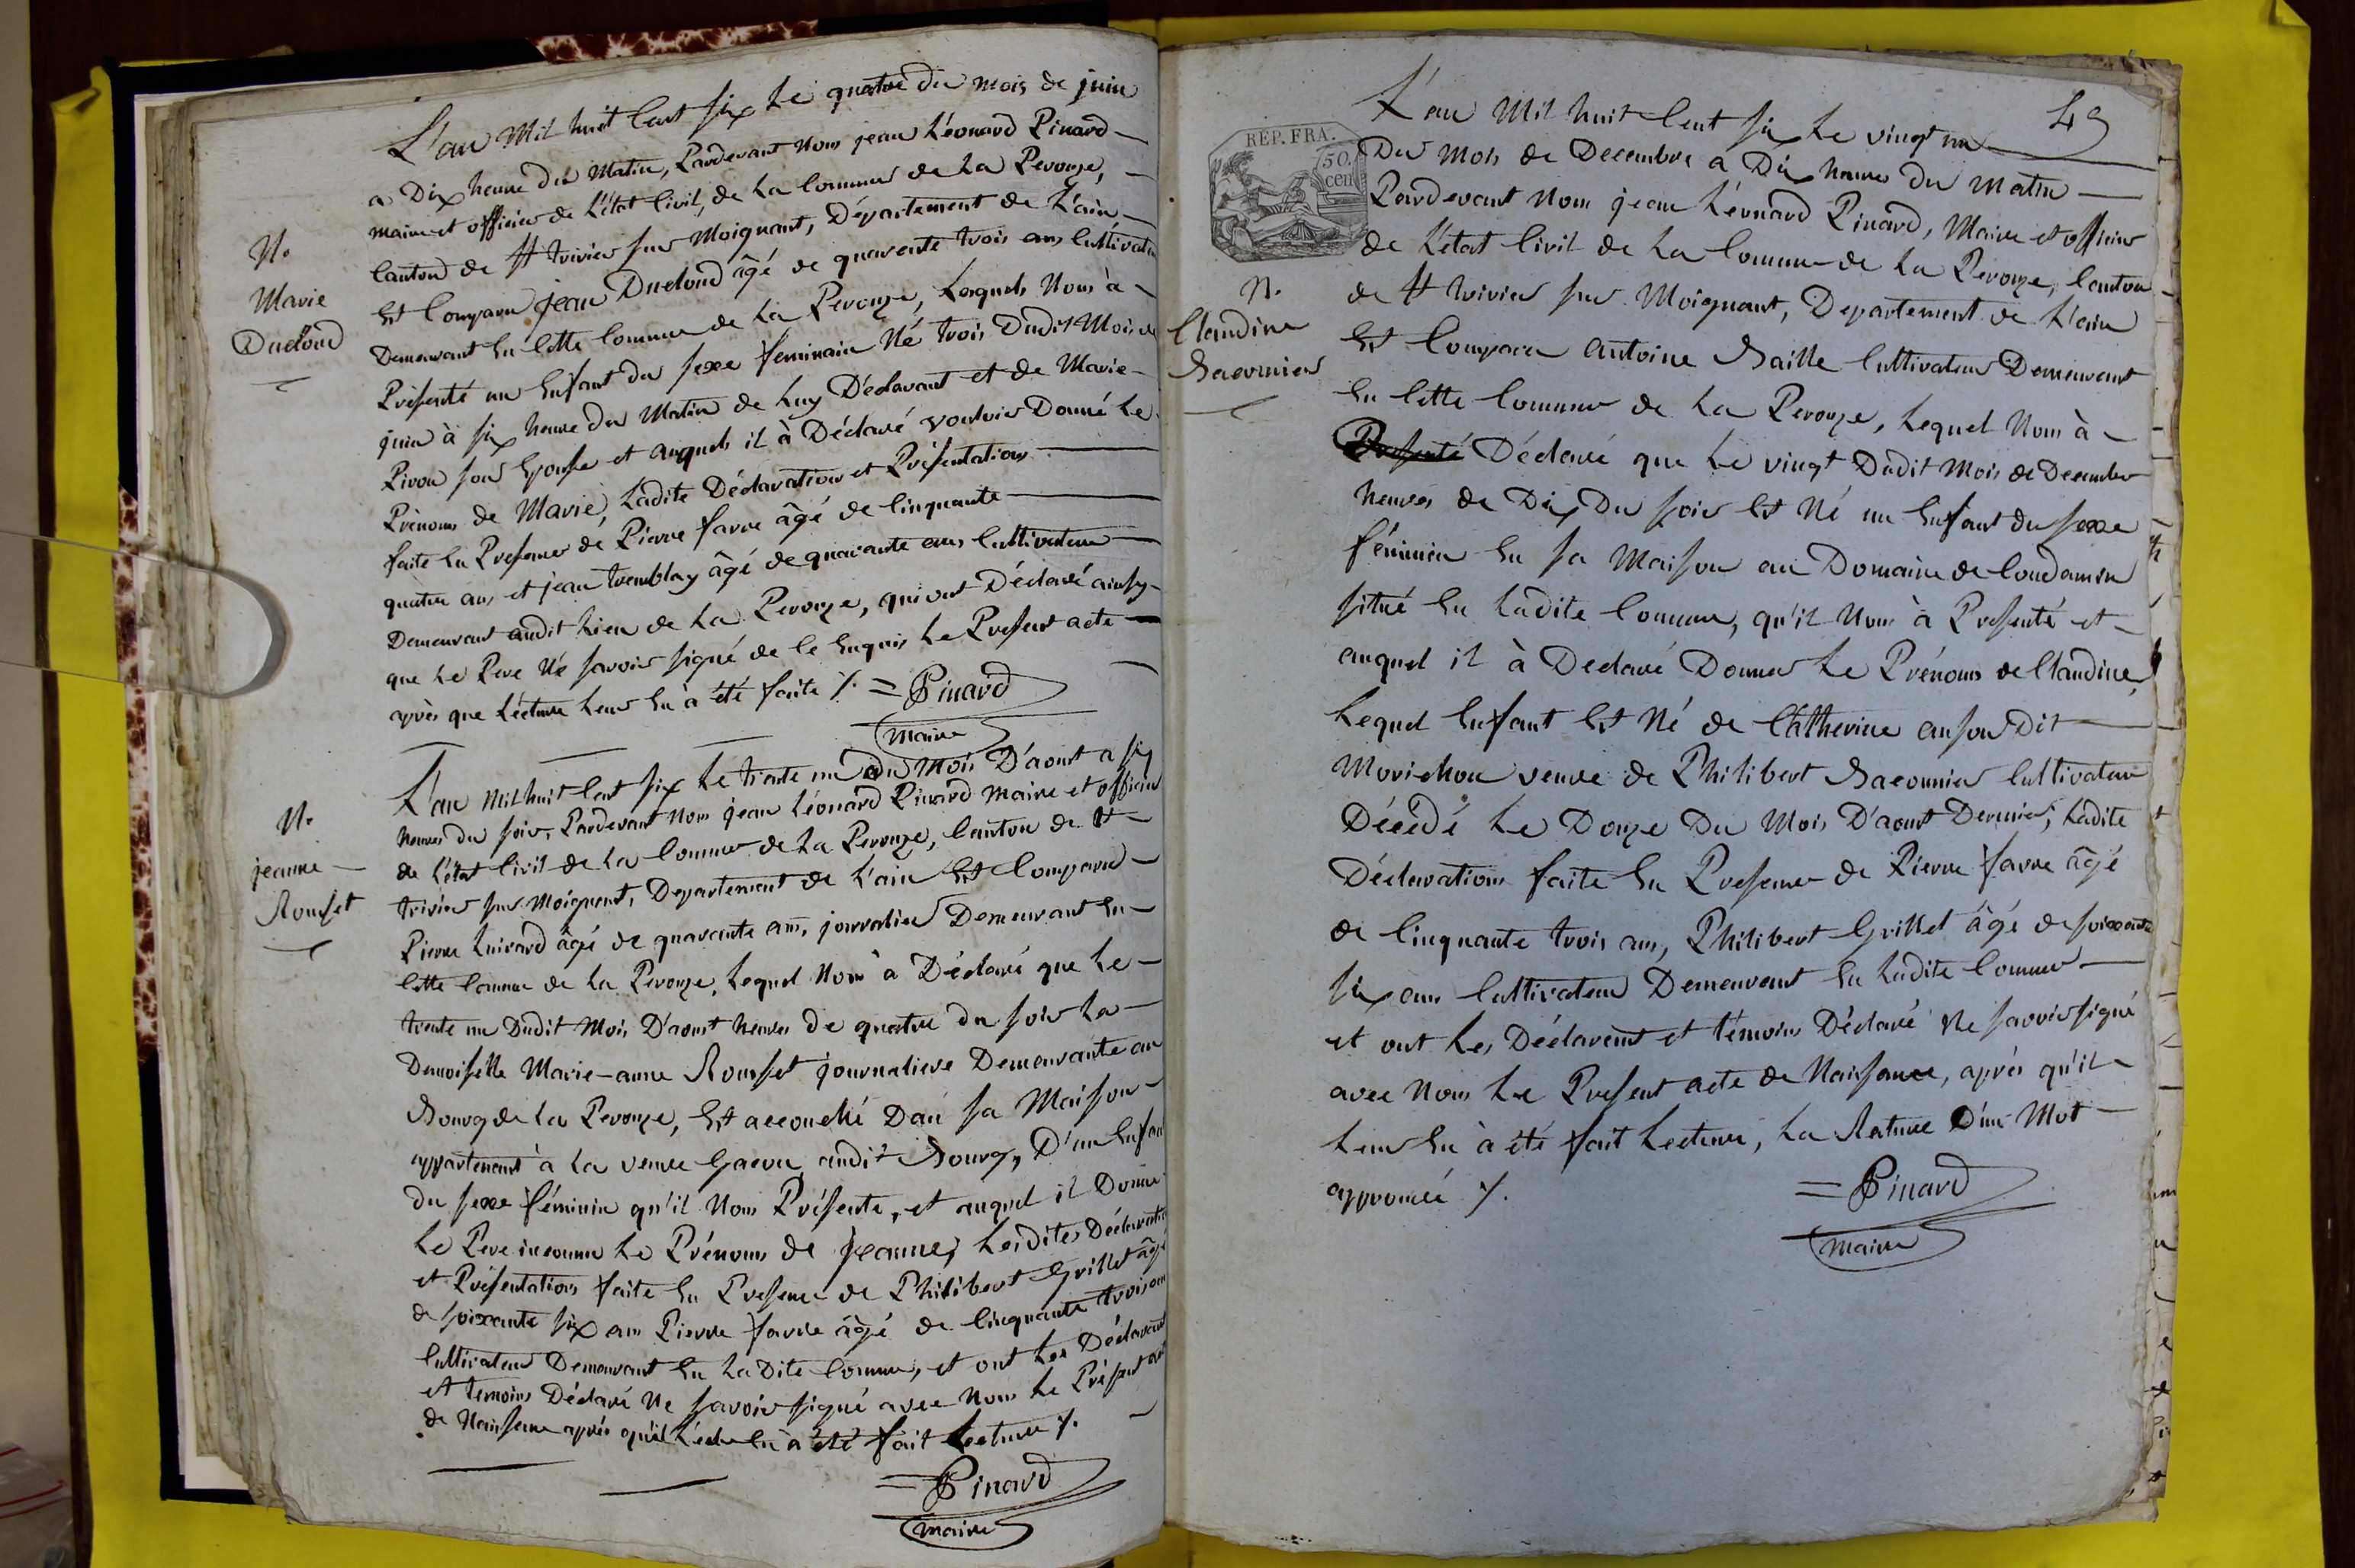 L'an Mil huit Cent six Le quatre du mois de juin
a Dix heure du Matin, Pardevant Nous jean Léonard Pinard
maire et officier de L'état Civil, de La Commune de La Perouze,
Canton de St trivier sur Moignant, Département de L'ain
Est Comparu jean Ducloud âgé de quarente trois ans Cultivateur
Demeurant En Cette Commune de La Perouze, Lequels Nous à
Présenté un Enfant du sexe feminain Né trois Dudit Mois de
juin à six heure du Matin de Luy Déclarant et de Marie
Pivon son Epouse et auquels il à Déclaré vouloir Donné Le
Prénoms de Marie, Ladite Déclaration et Présentations
faite En Presence de Pierre favre âgé de Cinquante
quatre ans et jean tremblay âgé de quarante ans Cultivateur
Demeurant audit Lieu de La Perouze, qui ont Déclaré ainsy
que Le Pere Né savoir signé de Ce Enquis Le Present acte
après que Léctture Leur En à été faite %. = Pinard
maire
N.
Marie
Ducloud
L'an Mil huit Cent six Le trente un du Mois D'aoust a six
heures du soir, Pardevant Nous jean Léonard Pinard Maire et officier
de L'état Civil de La Commune de La Perouze, Canton de St
trivier sur Moignent, Departement de L'ain Est Comparu
Pierre Luivard âgé de quarante ans, jornalier Demeurant En
Cette Commune de La Perouze, Lequel Nous à Déclaré que Le
trente un Dudit Mois D'aoust heures de quatre du soir La
Demoiselle Marie-anne Rousset journaliere Demeurante au
Bourg de La Perouze, Est accouché Dans sa Maison
appartenant à La veuve audit Bourg, D'un Enfant
du sexe féminin qu'il Nous Présente, et auquel il Donne
Le Pere inconnu Le Prénoms de Jeanne, Lesdites Déclarations
et Présentations faite En Presence de Philibert Grillet âgé
de soixante six ans Pierre favre âgé de Cinquante trois ans
Cultivateur Demeurant En Ladite Commune, et ont Les Déclarant
et temoins Déclaré Ne savoir signé avec Nous Le Présent acte
de Naissance après qu'il En à été fait Lecture %.
= Pinard
maire
N.
jeanne
Rousset
49
L'an Mil huit Cent six Le vingt un
Du Mois de Decembre a Dix heures Du Matin
Pardevant Nous jean Léonard Pinard, Maire et officier
de L'état Civil de La Commune de La Perouze, Canton
de St trivier sur Moignant, Departement de L'ain
Est Comparu antoine Baille Cultivateur Demeurant
En Cette Commune de La Perouze, Lequel Nous à
Presenté Déclaré que Le vingt Dudit Mois de Decembre
heures de Dix Du soir Est Né un Enfant du sexe
féminin En sa Maison au Domaine de Condamin
situé En Ladite Commune, qu'il Nous à Presenté et
auquel il à Declaré Donner Le Prénoms de Claudine,
Lequel Enfant Est Né de Catherine anson Dit
Morichon veuve de Philibert Bacounier Cultivateur
Décédé Le Douze Du Mois D'aoust Dernier; Ladite
Déclarations faite En Presence de Pierre favre âgé
de Cinquante trois ans, Philibert Grillet âgé de soixante
six ans Cultivateur Demeurant En Ladite Commune
et ont Les Déclarent et témoins Déclaré Ne savoir signé
avec Nous Le Present acte de Naissance, après qu'il
Leur En à été fait Lecture, La Rature D'un Mot
approuvée %.
= Pinard
maire
REP. FRA.
50.
cen
N.
Claudine
Bacounier